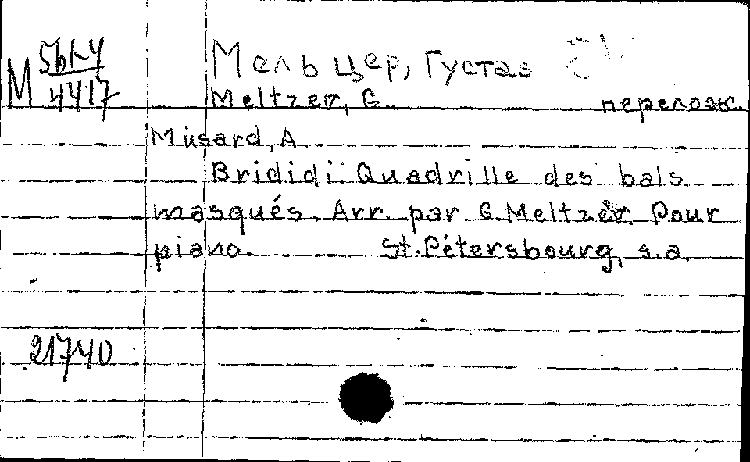 Мельцер, Густав
М 4417
Meltzer, G. перелож.
Musard, A
Brididi Quadrille des bals
masqués. Arr. par G. Meltzer. Pour
piano. St. Pétersbourg, s.a.
21740